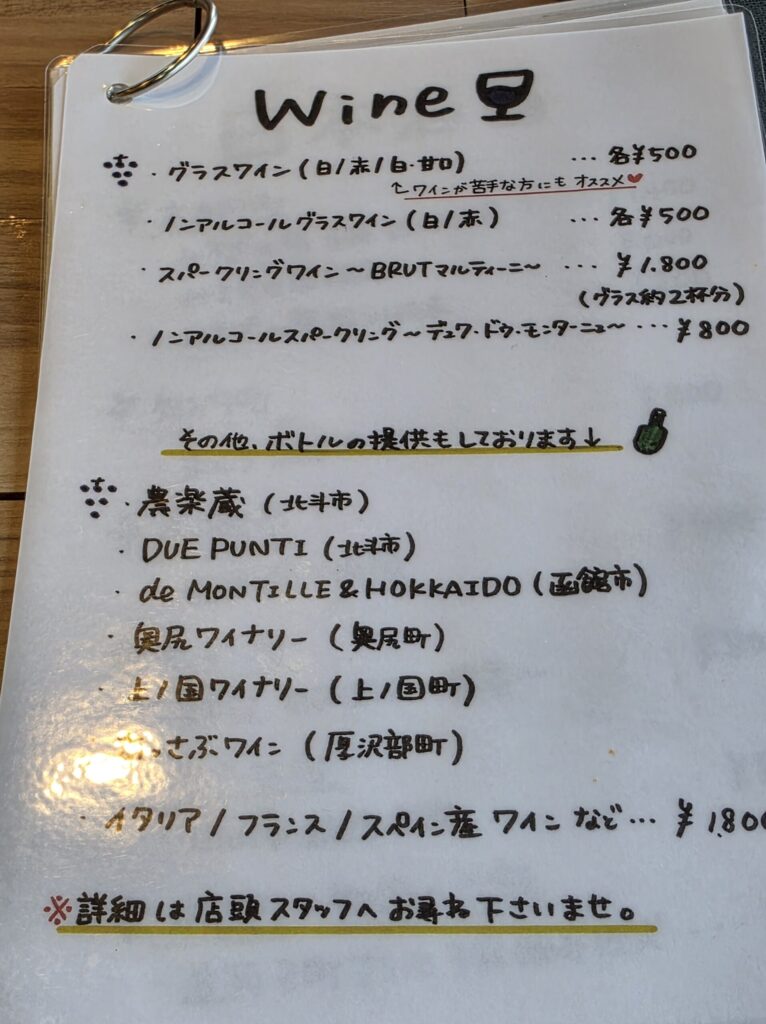 Wine
・グラスワイン(白/赤/白・甘口) … 各¥500
↑ワインが苦手な方にも オススメ♥
ノンアルコールグラスワイン(白/赤) … 各¥500
・スパークリングワイン～BRUTマルティーニ～ … ¥1.800
(グラス約2杯分)
・ノンアルコールスパークリング～デュク・ドゥ・モンターニュ～ … ¥800
その他、ボトルの提供もしております↓
・農楽蔵(北斗市)
・DUE PUNTI(北斗市)
・de MONTILLE & HOKKAIDO(函館市)
・奥尻ワイナリー(奥尻町)
・上ノ国ワイナリー(上ノ国町)
っさぶワイン(厚沢部町)
・イタリア/フランス/スペイン産 ワイン など… ¥1.800
※詳細は店頭スタッフへ お尋ね下さいませ。